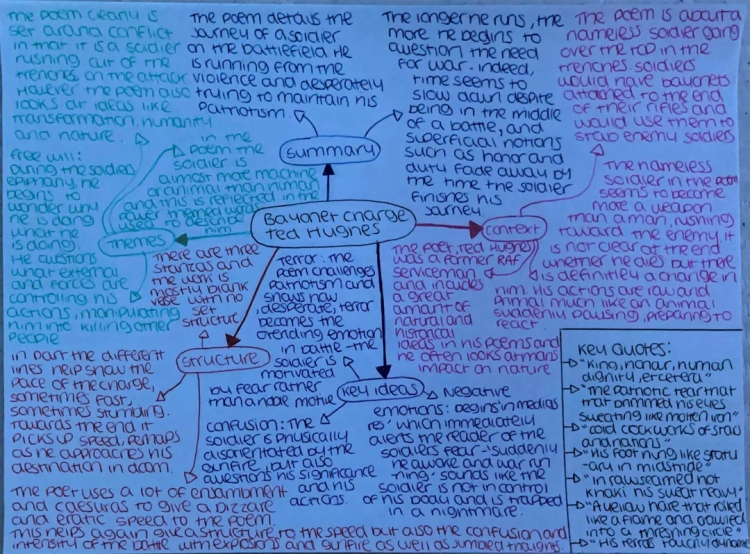 The poem clearly is
set around conflict
in that it is a soldier
rushing out of the
trenches on the attack
However the poem also
looks at ideas like
transformation, humanity
and nature.
Free will:
During the soldiers
epiphany, he
begins to
wonder why
he is doing
what he
is doing.
He questions
what external
and forces are
controlling his
actions, manipulating
him into killing other
people
in the
poem the
soldier is
almost more machine
or animal than human
and this is reflected in the
power themed words
used to describe
him
Themes
The poem details the
journey of a soldier
on the battlefield. He
is running from the
violence and desperately
trying to maintain his
patriotism.
Summary
The longer he runs, the
more he begins to
question the need
for war. Indeed,
time seems to
slow down despite
being in the middle
of a battle, and
superficial notions
such as honor and
duty fade away by
the time the soldier
finishes his
journey.
Bayonet charge
Ted Hughes
The poem is about a
nameless soldier going
over the top in the
trenches. Soldiers
would have bayonets
attached to the end
of their rifles and
would use them to
stab enemy soldiers
Context
The nameless
soldier in the poem
seems to become
more a weapon
than a man, rushing
toward the enemy it
is not clear at the end
whether he dies but there
is definitley a change in
him. His actions are raw and
primal much like an animal
suddenly pausing, preparing to
react.
The poet, Ted Hughes
was a former RAF
serviceman
and includes
a great
amount of
natural and
historical
ideas in his poems and
he often looks at mans
impact on nature
There are three
stanzas and
the work is
mostly blank
verse with no
set
structure
Structure
In part the different
lines help show the
pace of the charge,
sometimes fast,
sometimes stumbling.
Towards the end it
picks up speed, perhaps
as he approaches his
destination in
The poet uses a lot of
and caesuras to give a bizzare
and eratic speed to the poem.
This helps again give a structure to the speed but also the confusion and
intensity of the battle with explosions and gunfire as well as jumbled thoughts
Terror: The
poem challenges
patriotism and
shows how
desperate, terror
becomes the
overriding emotion
in battle - the
soldier is
motivated
by fear rather
than a motive
Key ideas
confusion: the
soldier is physically
disorientated by the
gunfire, but also
questions his significance
and his
actions.
Negative
emotions: begins 'in medias
res' which immediately
alerts the reader of the
soldiers fear - 'suddenly
he awoke and was run
ning' sounds like the
soldier is not in control
of his body and is trapped
in a nightmare.
Key Quotes:
"King, honor, human
dignity, etcetera"
"The patriotic tear that
that brimmed his eyes
sweating like molten iron"
"cold clockworks of stars
and nations"
"His foot hung like statu
-ary in midstride"
"In raw seamed hot
khaki his sweat heavy"
"A yellow hare that rolled
like a flame and crawled
into a threshing circle"
"His terrors touchy dynamite